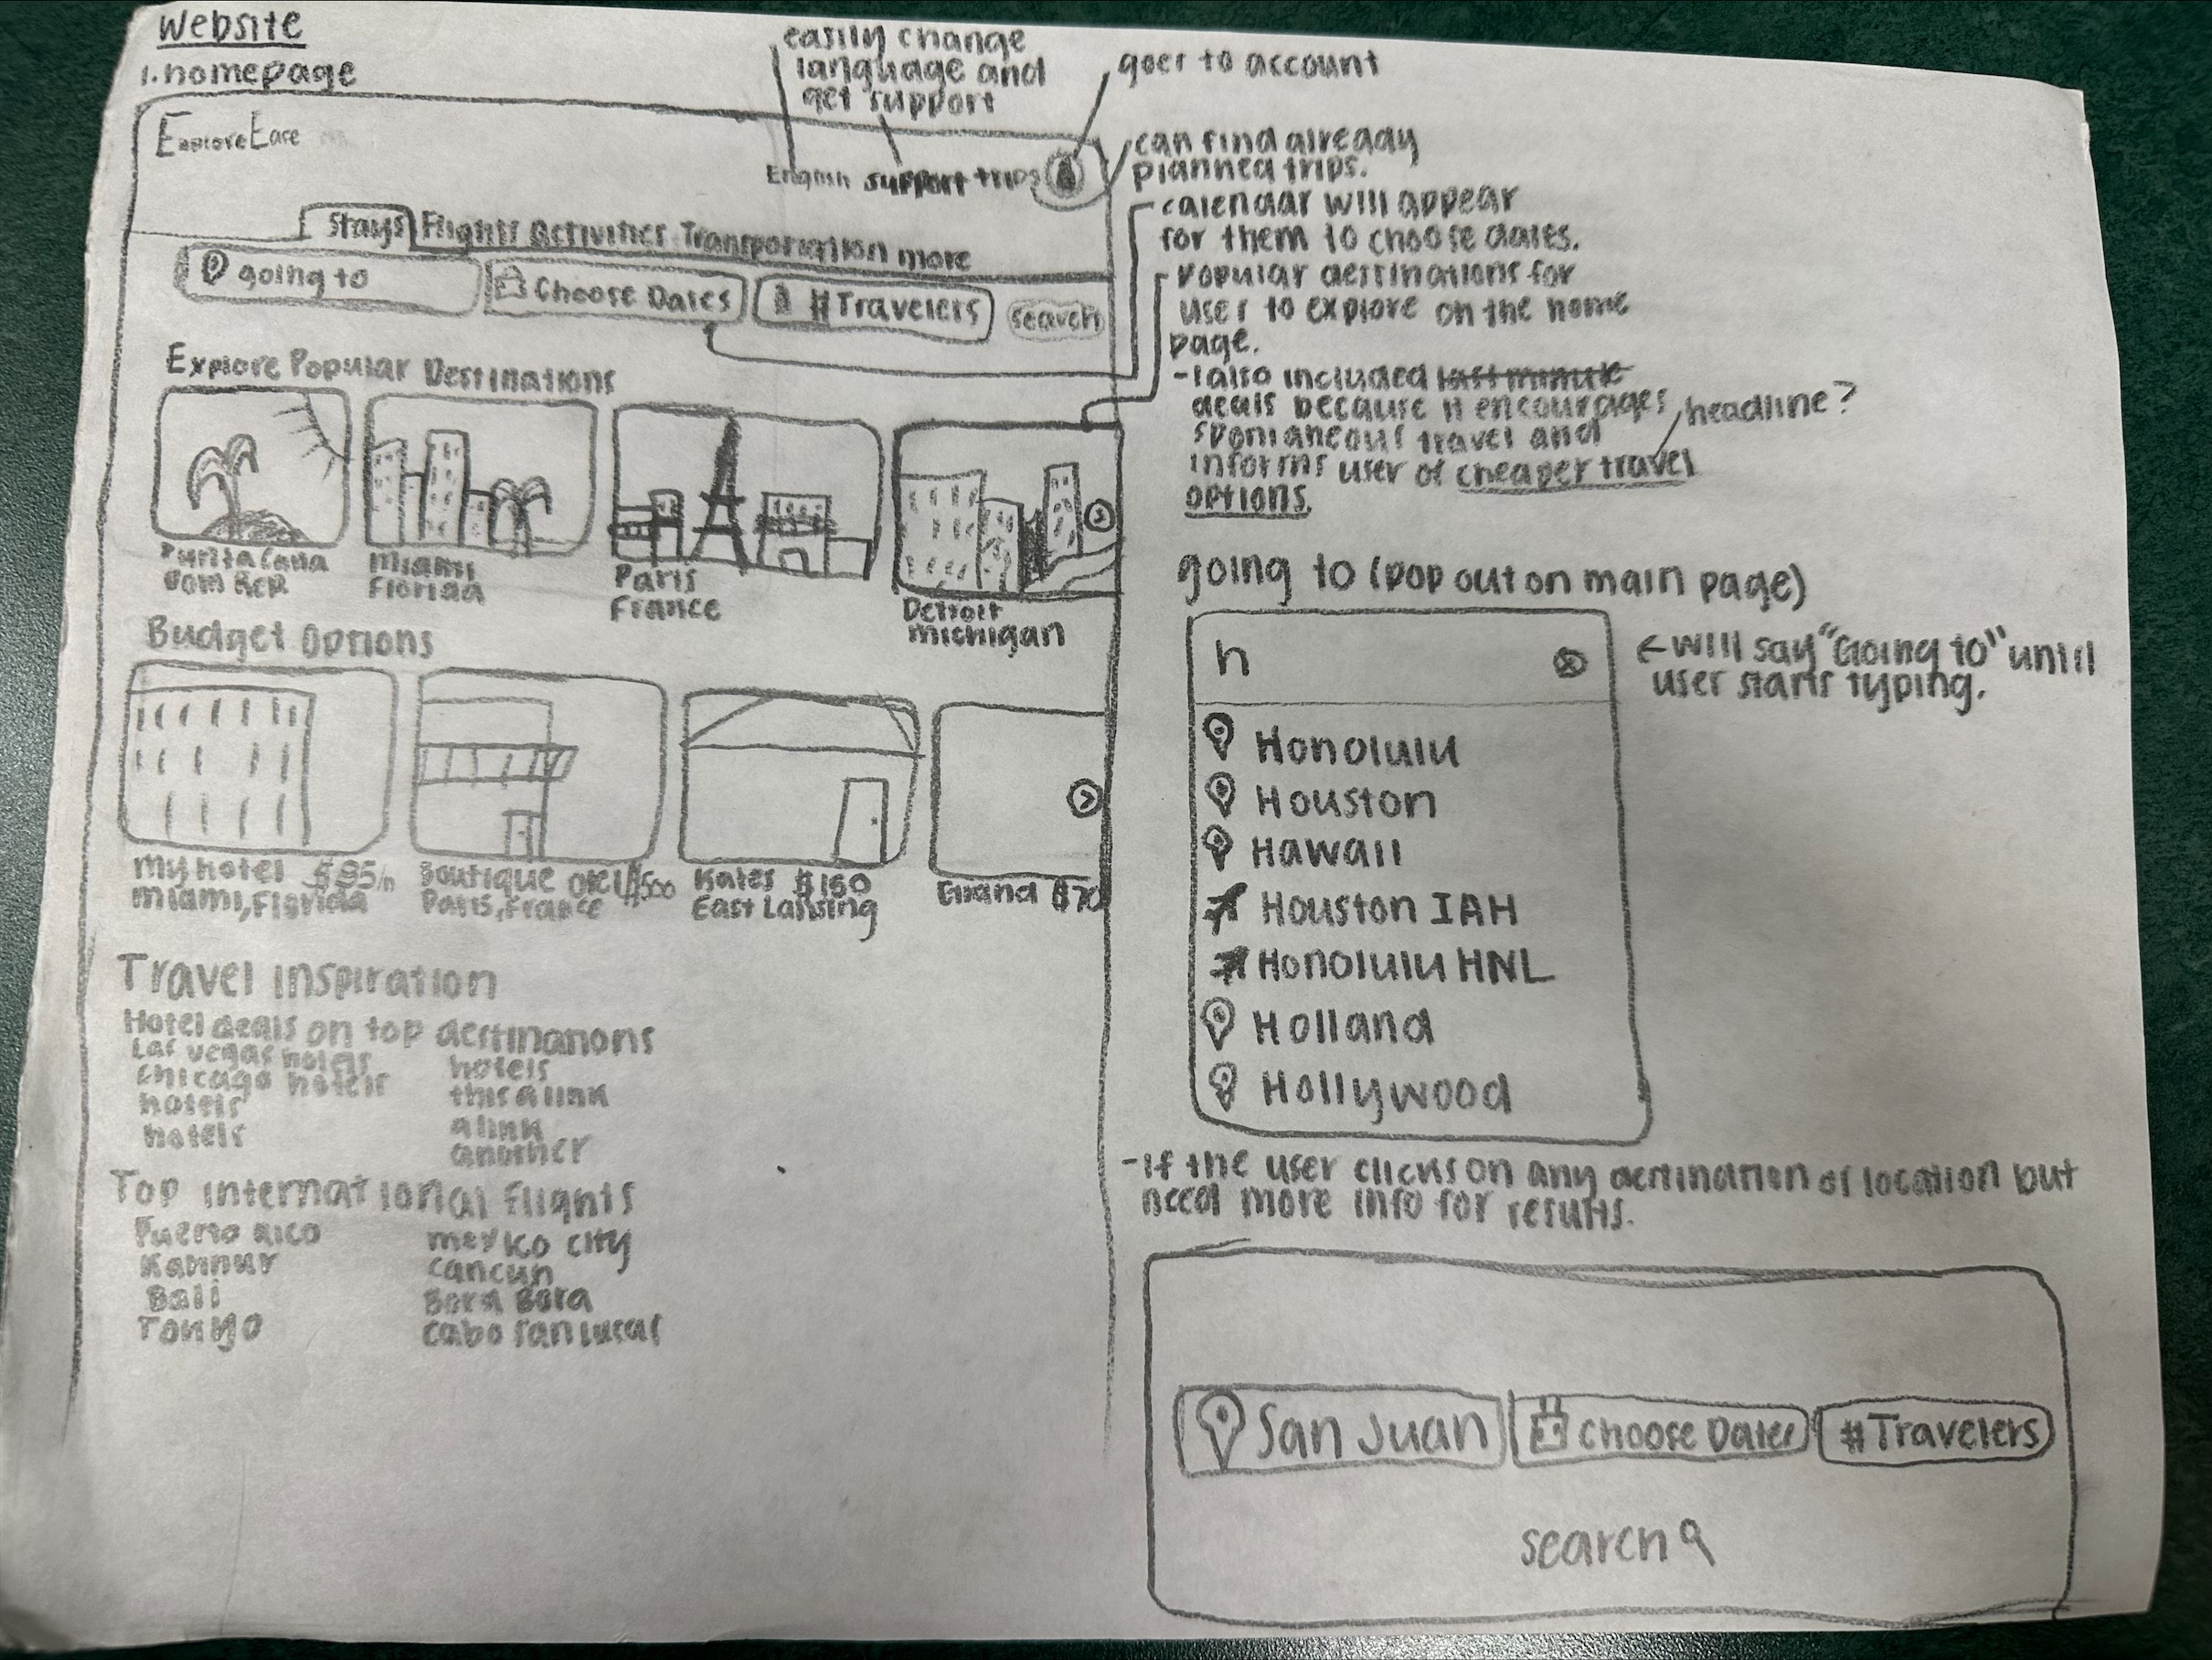 Website
1. homepage
easily change
language and
get support
goes to account
ExploreEase
English support trips
can find already
planned trips.
Stays Flights Activities Transportation more
going to
Choose Dates
# Travelers
search
- calendar will appear
for them to choose dates.
- Popular destinations for
user to explore on the home
page.
- I also included last minute
deals because it encourages
spontaneous travel and
informs user of cheaper travel
options.
headline?
Explore Popular Destinations
Punta Cana
Dom Rep
Miami
Florida
Paris
France
Detroit
michigan
Budget Options
My hotel $85/n
Miami, Florida
Boutique
Paris, France
Kates $160
East Lansing
$70
Travel Inspiration
Hotel deals on top destinations
Las Vegas hotels
Chicago hotels
hotels
hotels
hotels
this a link
a link
another
Top international flights
Puerto Rico
Kannur
Bali
Tokyo
mexico city
cancun
Bora Bora
cabo san lucas
going to (pop out on main page)
h
← will say "Going to" until
user starts typing.
Honolulu
Houston
Hawaii
Houston IAH
Honolulu HNL
Holland
Hollywood
- If the user clicks on any destination of location but
need more info for results.
San Juan
choose Dates
# Travelers
search